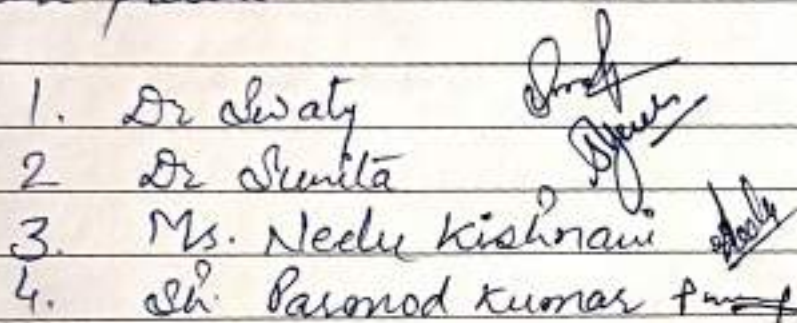 present
1. Dr Swaty
2 Dr Sunita
3. Ms. Neelu Kishnani
4. Sh. Parmod Kumar